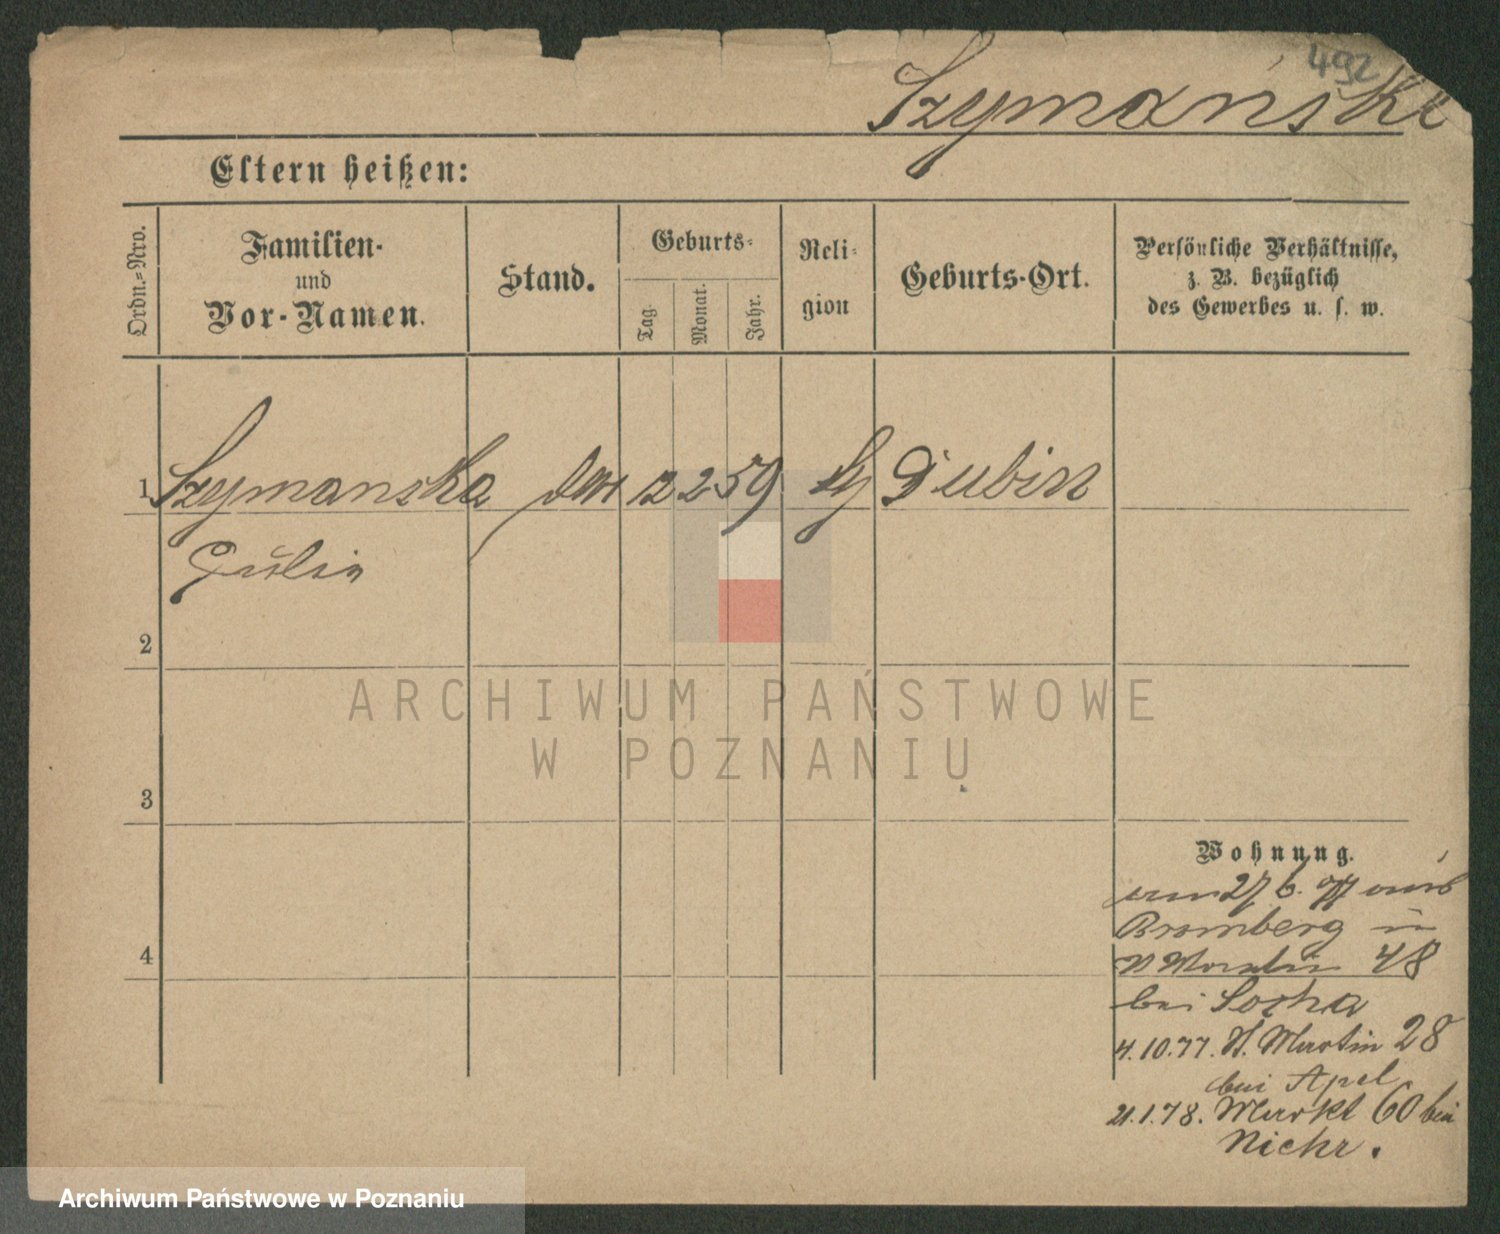 492
Szymański
Eltern heißen:
Ordn.-Nro.
Familien-
und
Vor-Namen.
Stand.
Geburts-
Tag.
Monat.
Jahr.
Reli-
gion
Geburts-Ort.
Persönliche Verhältnisse,
z. B. bezüglich
des Gewerbes u. s. w.
1 Szymanska 12 2 59 Dubin
Julia
2
ARCHIWUM PAŃSTWOWE
W POZNANIU
3
Wohnung.
27 6. 77 aus
Bromberg in
4
48
bei Socha
4.10.77. St. Martin 28
bei Apel
21.1.78. Markt 60 bei
Nichr.
Archiwum Państwowe w Poznaniu